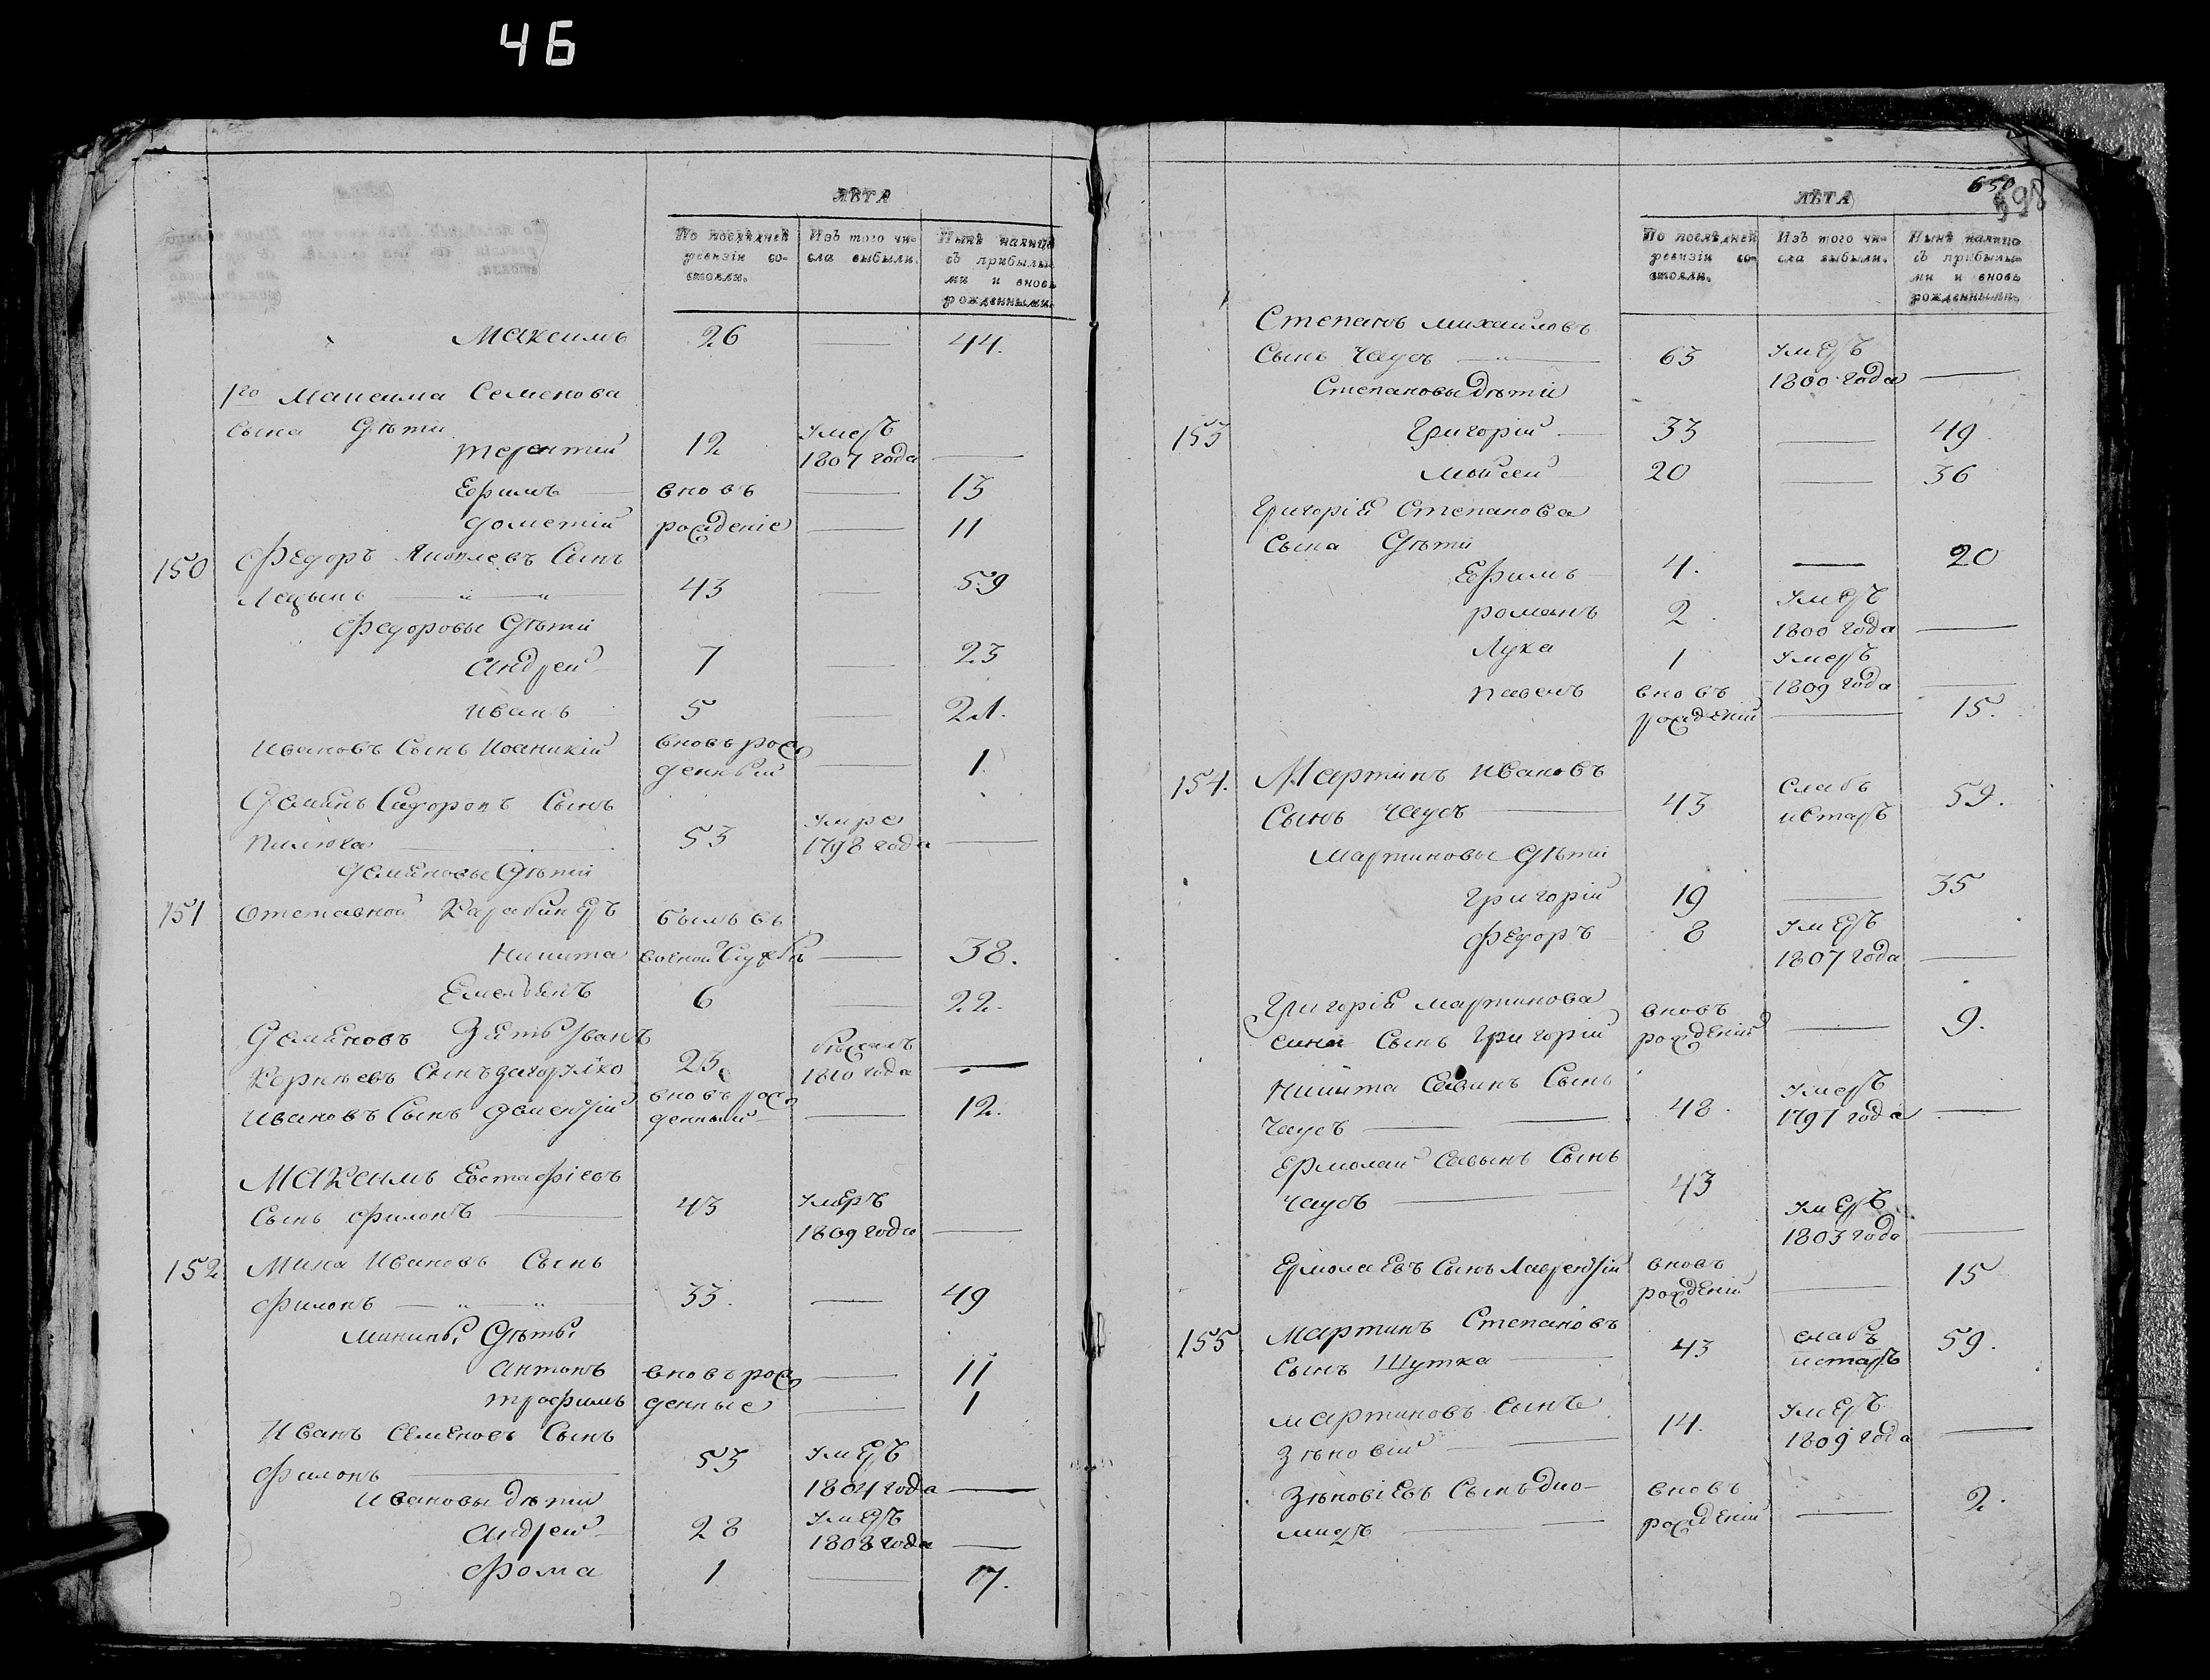 46
ЛѢТА
По послѣдней ревизіи состояли.
Изъ того числа выбыли.
Нынѣ налицо съ прибылыми и вновь рожденными.
Максимъ 26 — 44.
1го Максима Семенова
сына Дѣти
терентій 12 умеръ 1807 года —
Ефимъ — вновь — 13
дометій рожденіе — 11
150 Федоръ Яковлевъ Сынъ
— " — " — 43 — 59
Федоровы Дѣти
Андрей 7 — 23
Иванъ 5 — 21.
Ивановъ Сынъ Иоаникій вновь рожденный — 1.
Сидоровъ Сынъ
53 умре 1798 года —
Дѣти
151 Отставной Карабинеръ былъ въ
Никита военной службѣ — 38.
Емельянъ 6 — 22.
Зять Иванъ
Корнѣевъ Сынъ 23. 1810 года —
Ивановъ Сынъ вновь рожденный — 12.
Максимъ Евстафіевъ
Сынъ Филонъ — 43 умеръ 1809 года —
152 Мина Ивановъ Сынъ
Филонъ — " — " — 33. — 49
Минины Дѣти
Антонъ вновь рож — 11
трофимъ денные — 1
Иванъ Семеновъ Сынъ
Филонъ — 53 умеръ 1804 года —
Ивановы дѣти
Андрей — 28 умеръ 1808 года —
Фома 1 — 17.
650
598
ЛѢТА
По послѣдней ревизіи состояли.
Изъ того числа выбыли.
Нынѣ налицо съ прибылыми и вновь рожденными.
Степанъ михаиловъ
Сынъ Чаусъ — " — 63 умеръ 1800 года —
Степановы Дѣти
153 Григорій — 33 — 49.
Мойсей — 20 — 36
Григорія Степанова
Сына Дѣти
Ефимъ — 4. — 20
романъ 2. умеръ 1800 года —
Лука 1 умеръ 1809 года —
павелъ вновь рожденій — 15.
154. Мартинъ Ивановъ
Сынъ Чаусъ — 43 слабъ и старъ 59.
Мартиновы Дѣти
Григорій 19 — 35
Федоръ — 8 умеръ 1807 года —
Григорія мартинова вновь
сина Сынъ Григорій рожденій — 9.
Никита Савинъ Сынъ
Чаусъ — — 48. умеръ 1797 года —
Ермолай Савынъ Сынъ
Чаусъ — 43 умеръ 1803 года —
Ермолаевъ Сынъ Лаврентій вновь рожденій — 15
155 Мартинъ Степановъ
Сынъ Шутка — 43 слабъ и старъ 59.
мартиновъ Сынъ
Зѣновій — — 14. умеръ 1809 года —
Зѣновіевъ Сынъ Дио-
мидъ — вновь рожденій — 2.